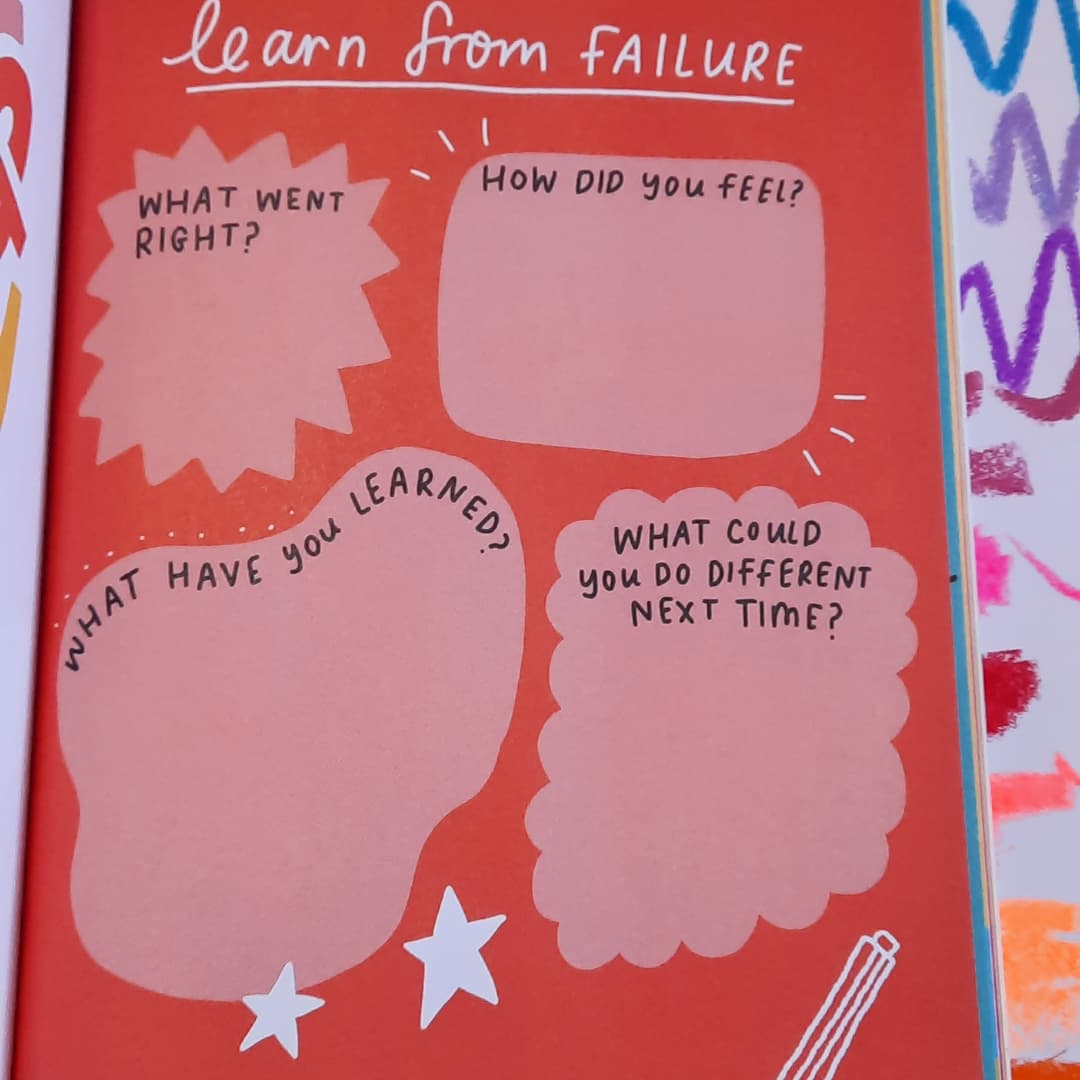 learn from FAILURE
WHAT WENT
RIGHT?
HOW DID you fEEL?
WHAT HAVE you LEARNED?
WHAT COULD
you DO DIffERENT
NEXT TIME?